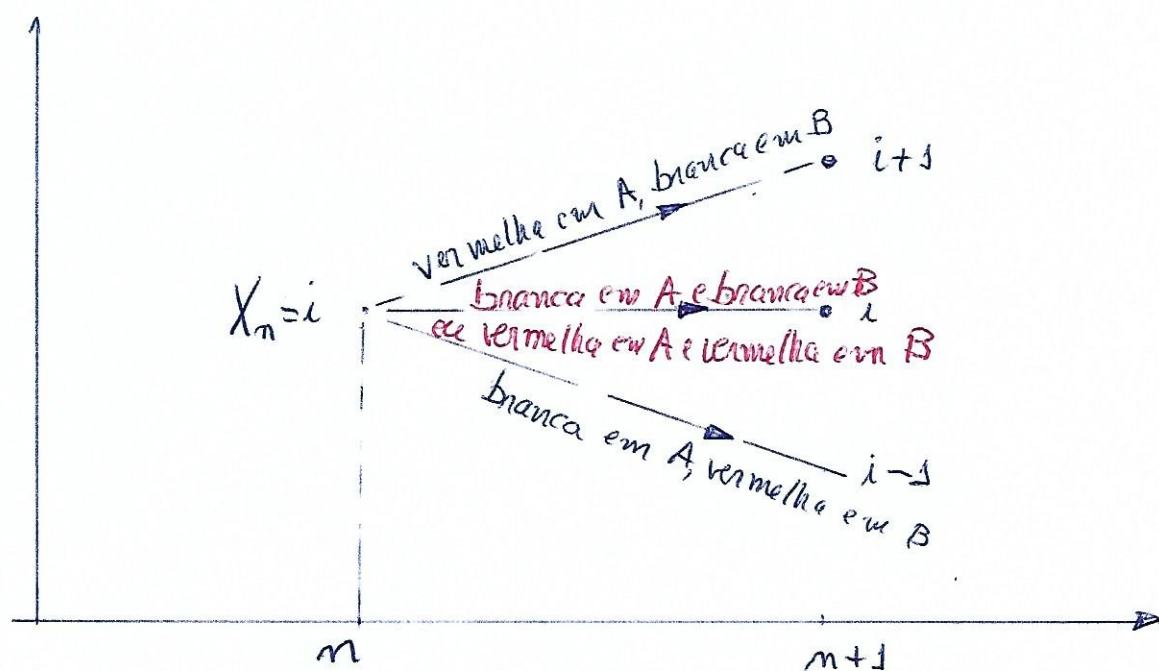 vermelha em A, branca em B
i+1
X_n=i
branca em A, e branca em B
i
ou vermelha em A e vermelha em B
branca em A, vermelha em B
i-1
n
n+1